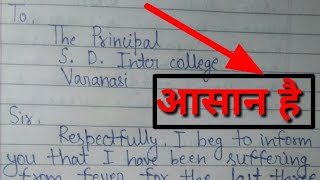 To,
The Principal
S. D. Inter college
Varanasi
आसान है
Sir,
Respectfully, I beg to inform
you that I have been suffering
from fever for the last three